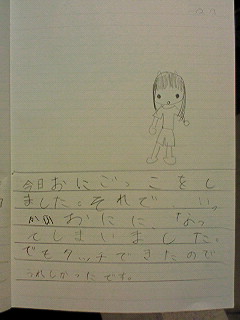 今日おにごっこをし
ました。それで、いっ
かいおにに、なっ
てしまいました。
でもタッチできたので
うれしかったです。